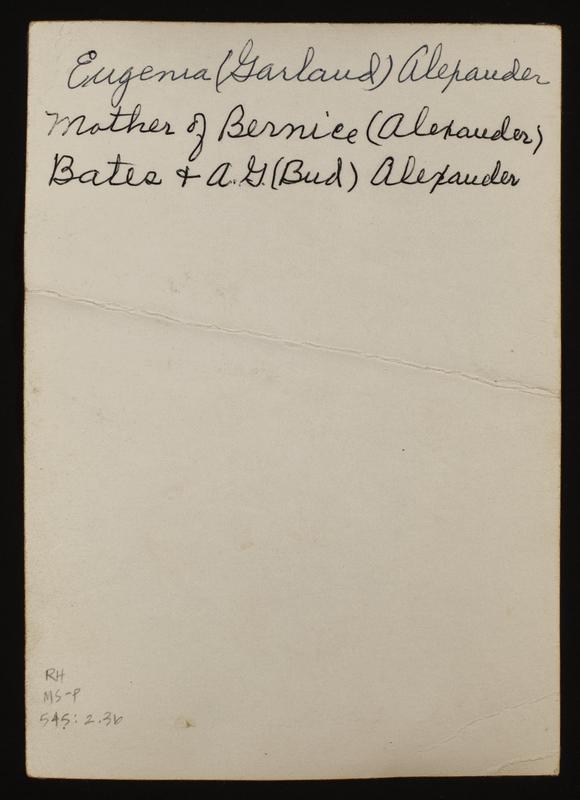 Eugenia (Garland) Alexander
Mother of Bernice (Alexander)
Bates & A.G. (Bud) Alexander
RH
MS-P
545: 2.36